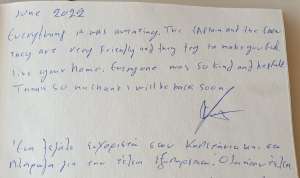 June 2022
Everything was amazing. The Captain and the crew
they are very friendly and they try to make you feel
like your home. Everyone was so kind and helpfull
Thank so much and I will be back soon
Ένα μεγάλο ευχαριστώ στον Καπετάνιο και στο
πλήρωμα για την τέλεια εξυπηρέτηση. Όλα ήταν τέλεια